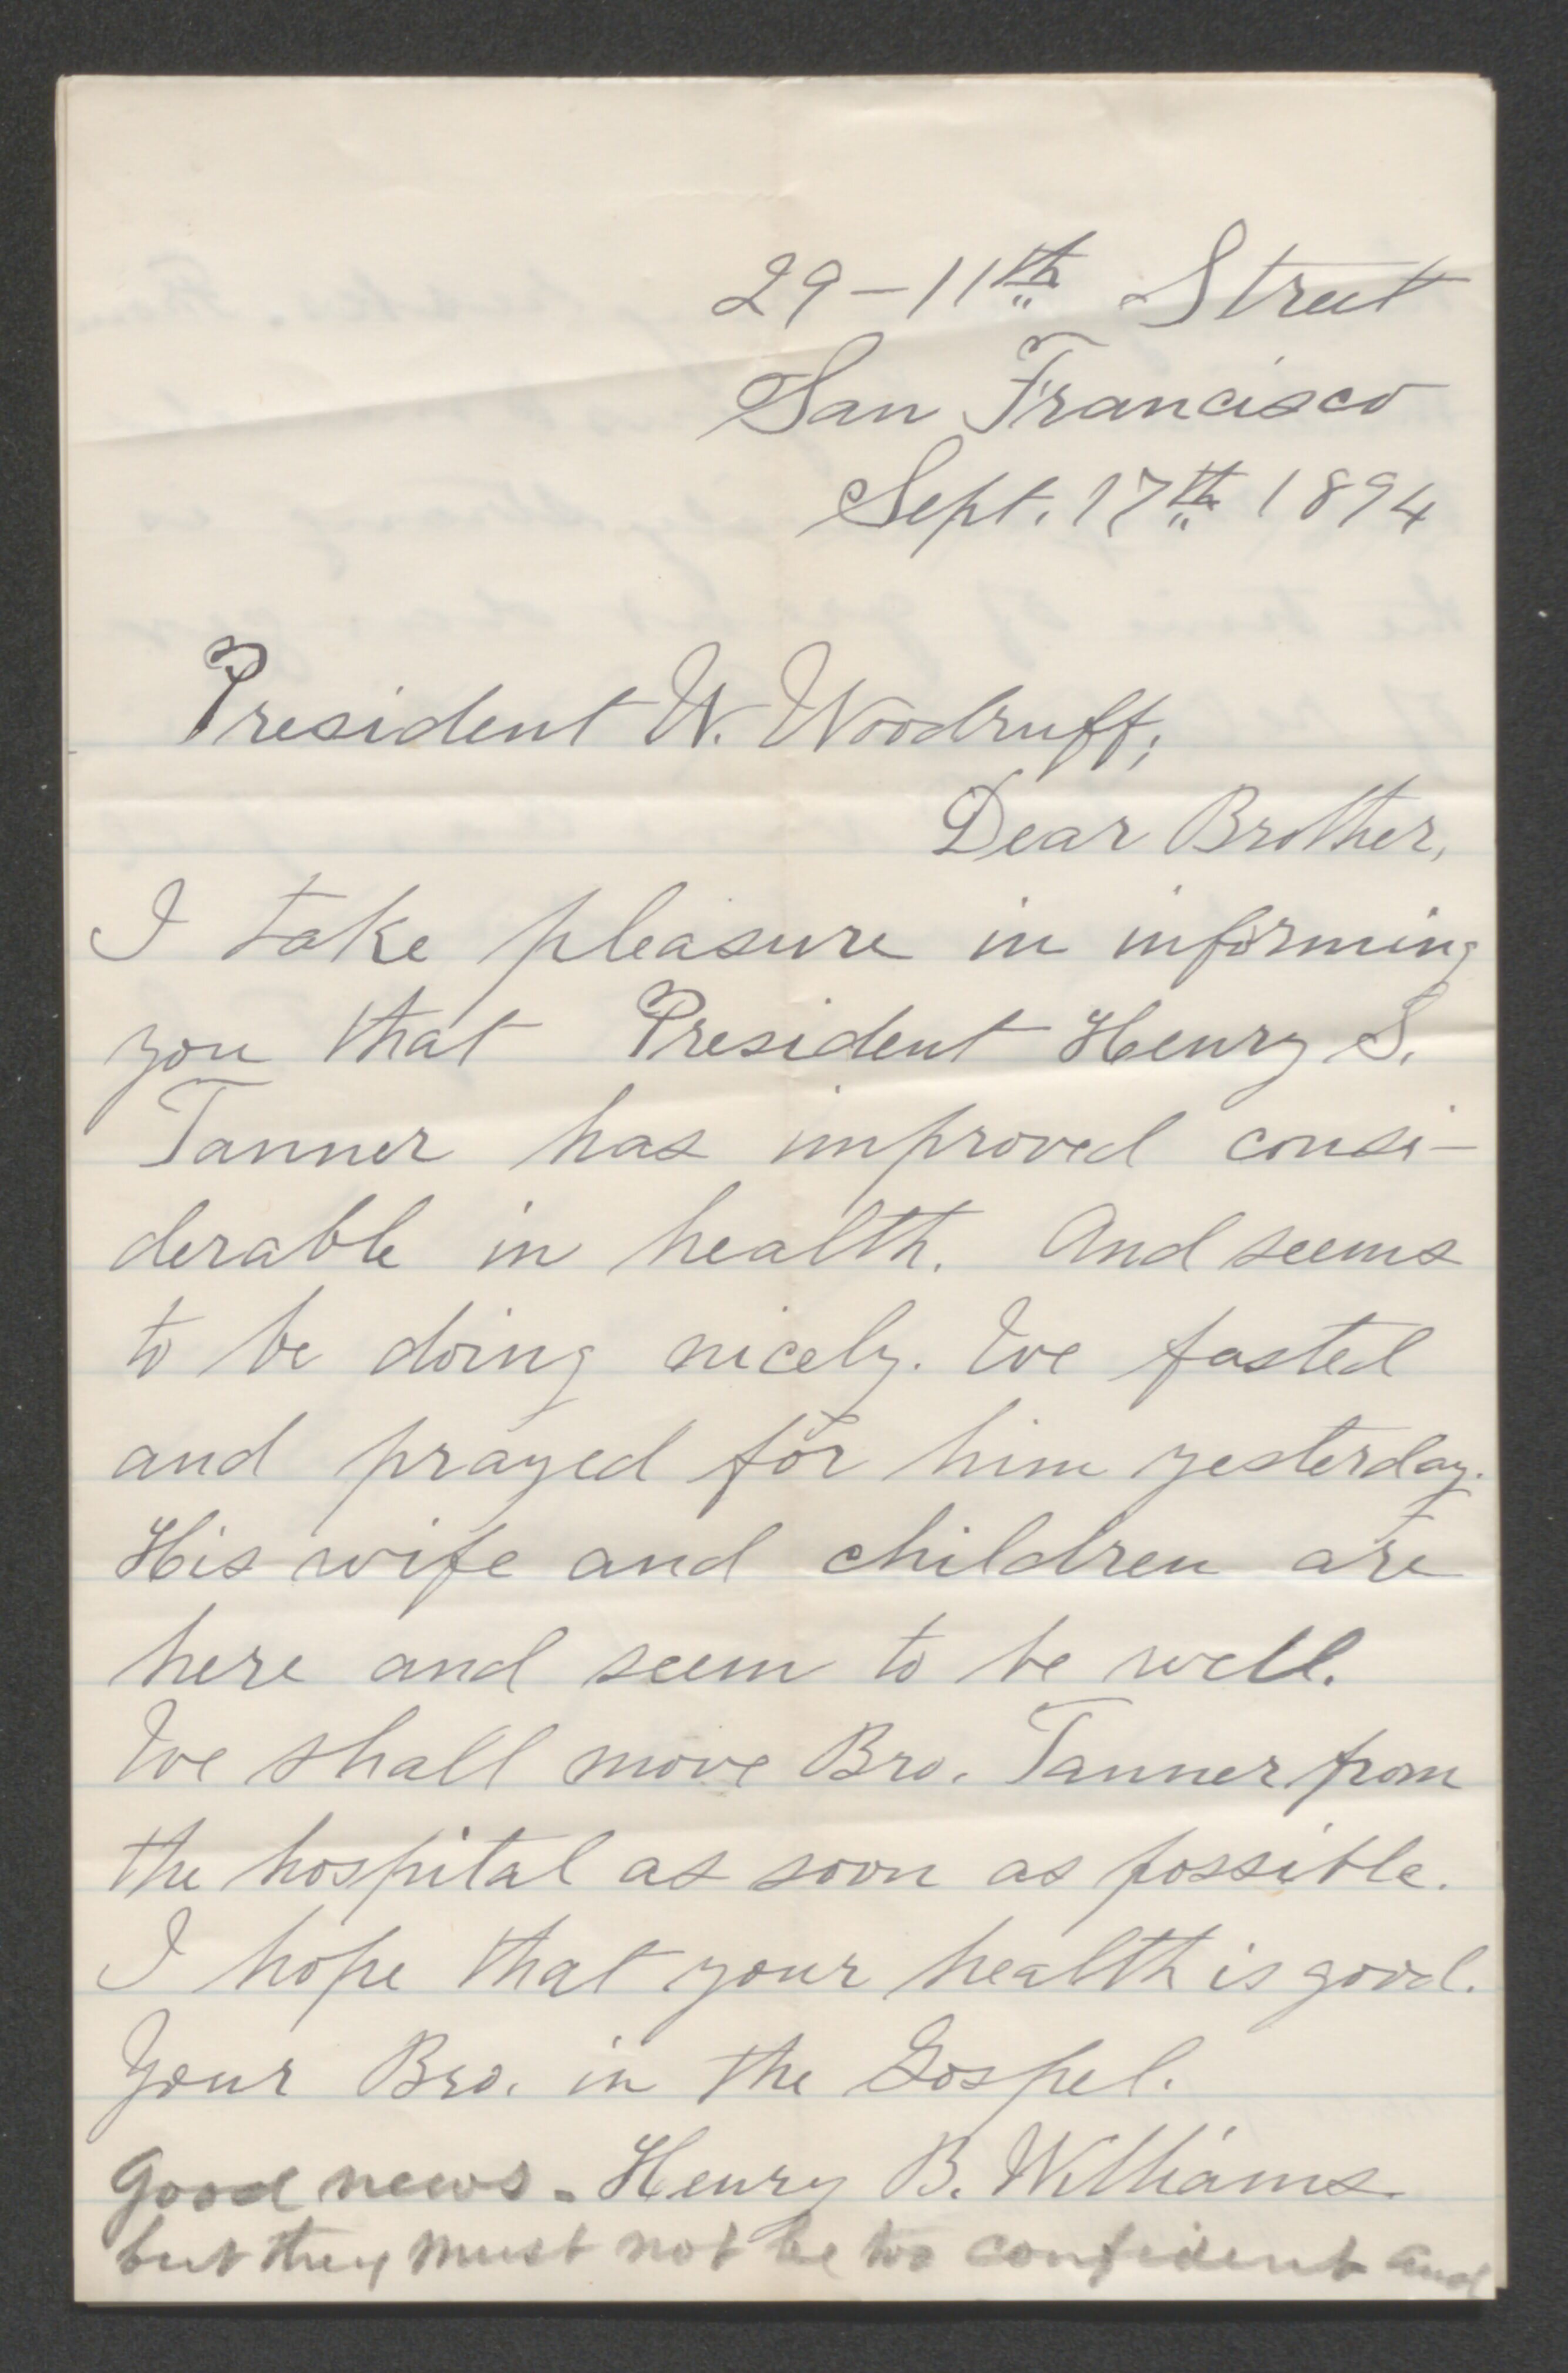 29-11th Street
San Francisco
Sept. 17th 1894
President W. Woodruff;
Dear Brother,
I take pleasure in informing
you that President Henry S.
Tanner has improved consi-
derable in health. And seems
to be doing nicely. We fasted
and prayed for him yesterday.
His wife and children are
here and seem to be well.
We shall move Bro. Tanner from
the hospital as soon as possible.
I hope that your health is good.
Your Bro. in the Gospel.
Henry B. Williams
Good news.
but they must not be too confident and